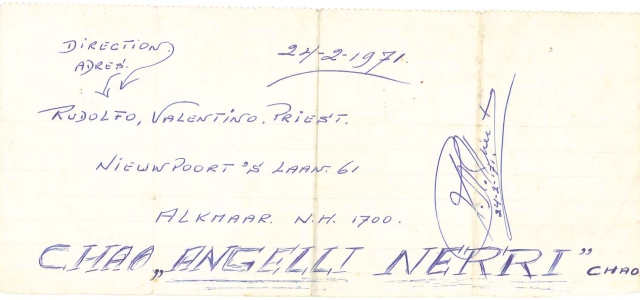 DIRECTION
ADRES.
24-2-1971.
RUDOLFO, VALENTINO. PRIEST.
NIEUWPOORT'S LAAN. 61
ALKMAAR. N.H. 1700.
24-2-'71.
CHAO „ANGELLI NERRI" CHAO